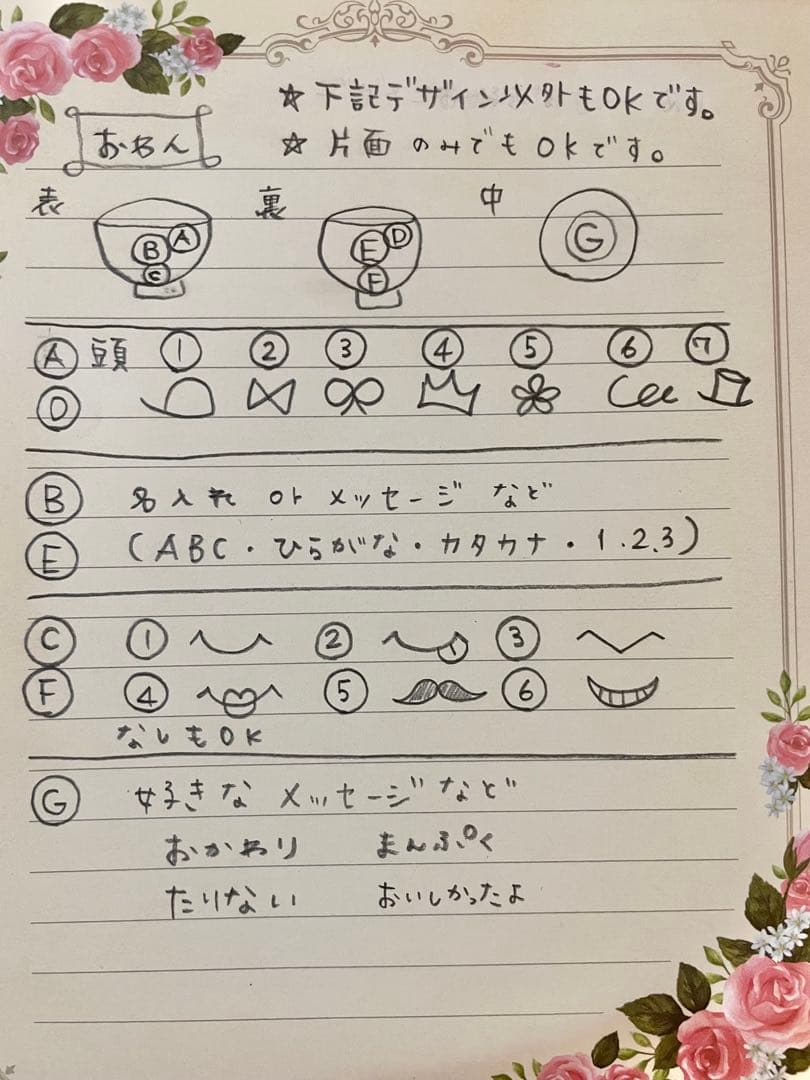 ☆下記デザイン以外もOKです。
おわん
☆片面のみでもOKです。
表 裏 中
B A C E D F G
A 頭 ① ② ③ ④ ⑤ ⑥ ⑦
D
B 名入れ or メッセージ など
E (ABC・ひらがな・カタカナ・1.2.3)
C ① ② ③
F ④ ⑤ ⑥
なしもOK
G 好きな メッセージなど
おかわり まんぷく
たりない おいしかったよ